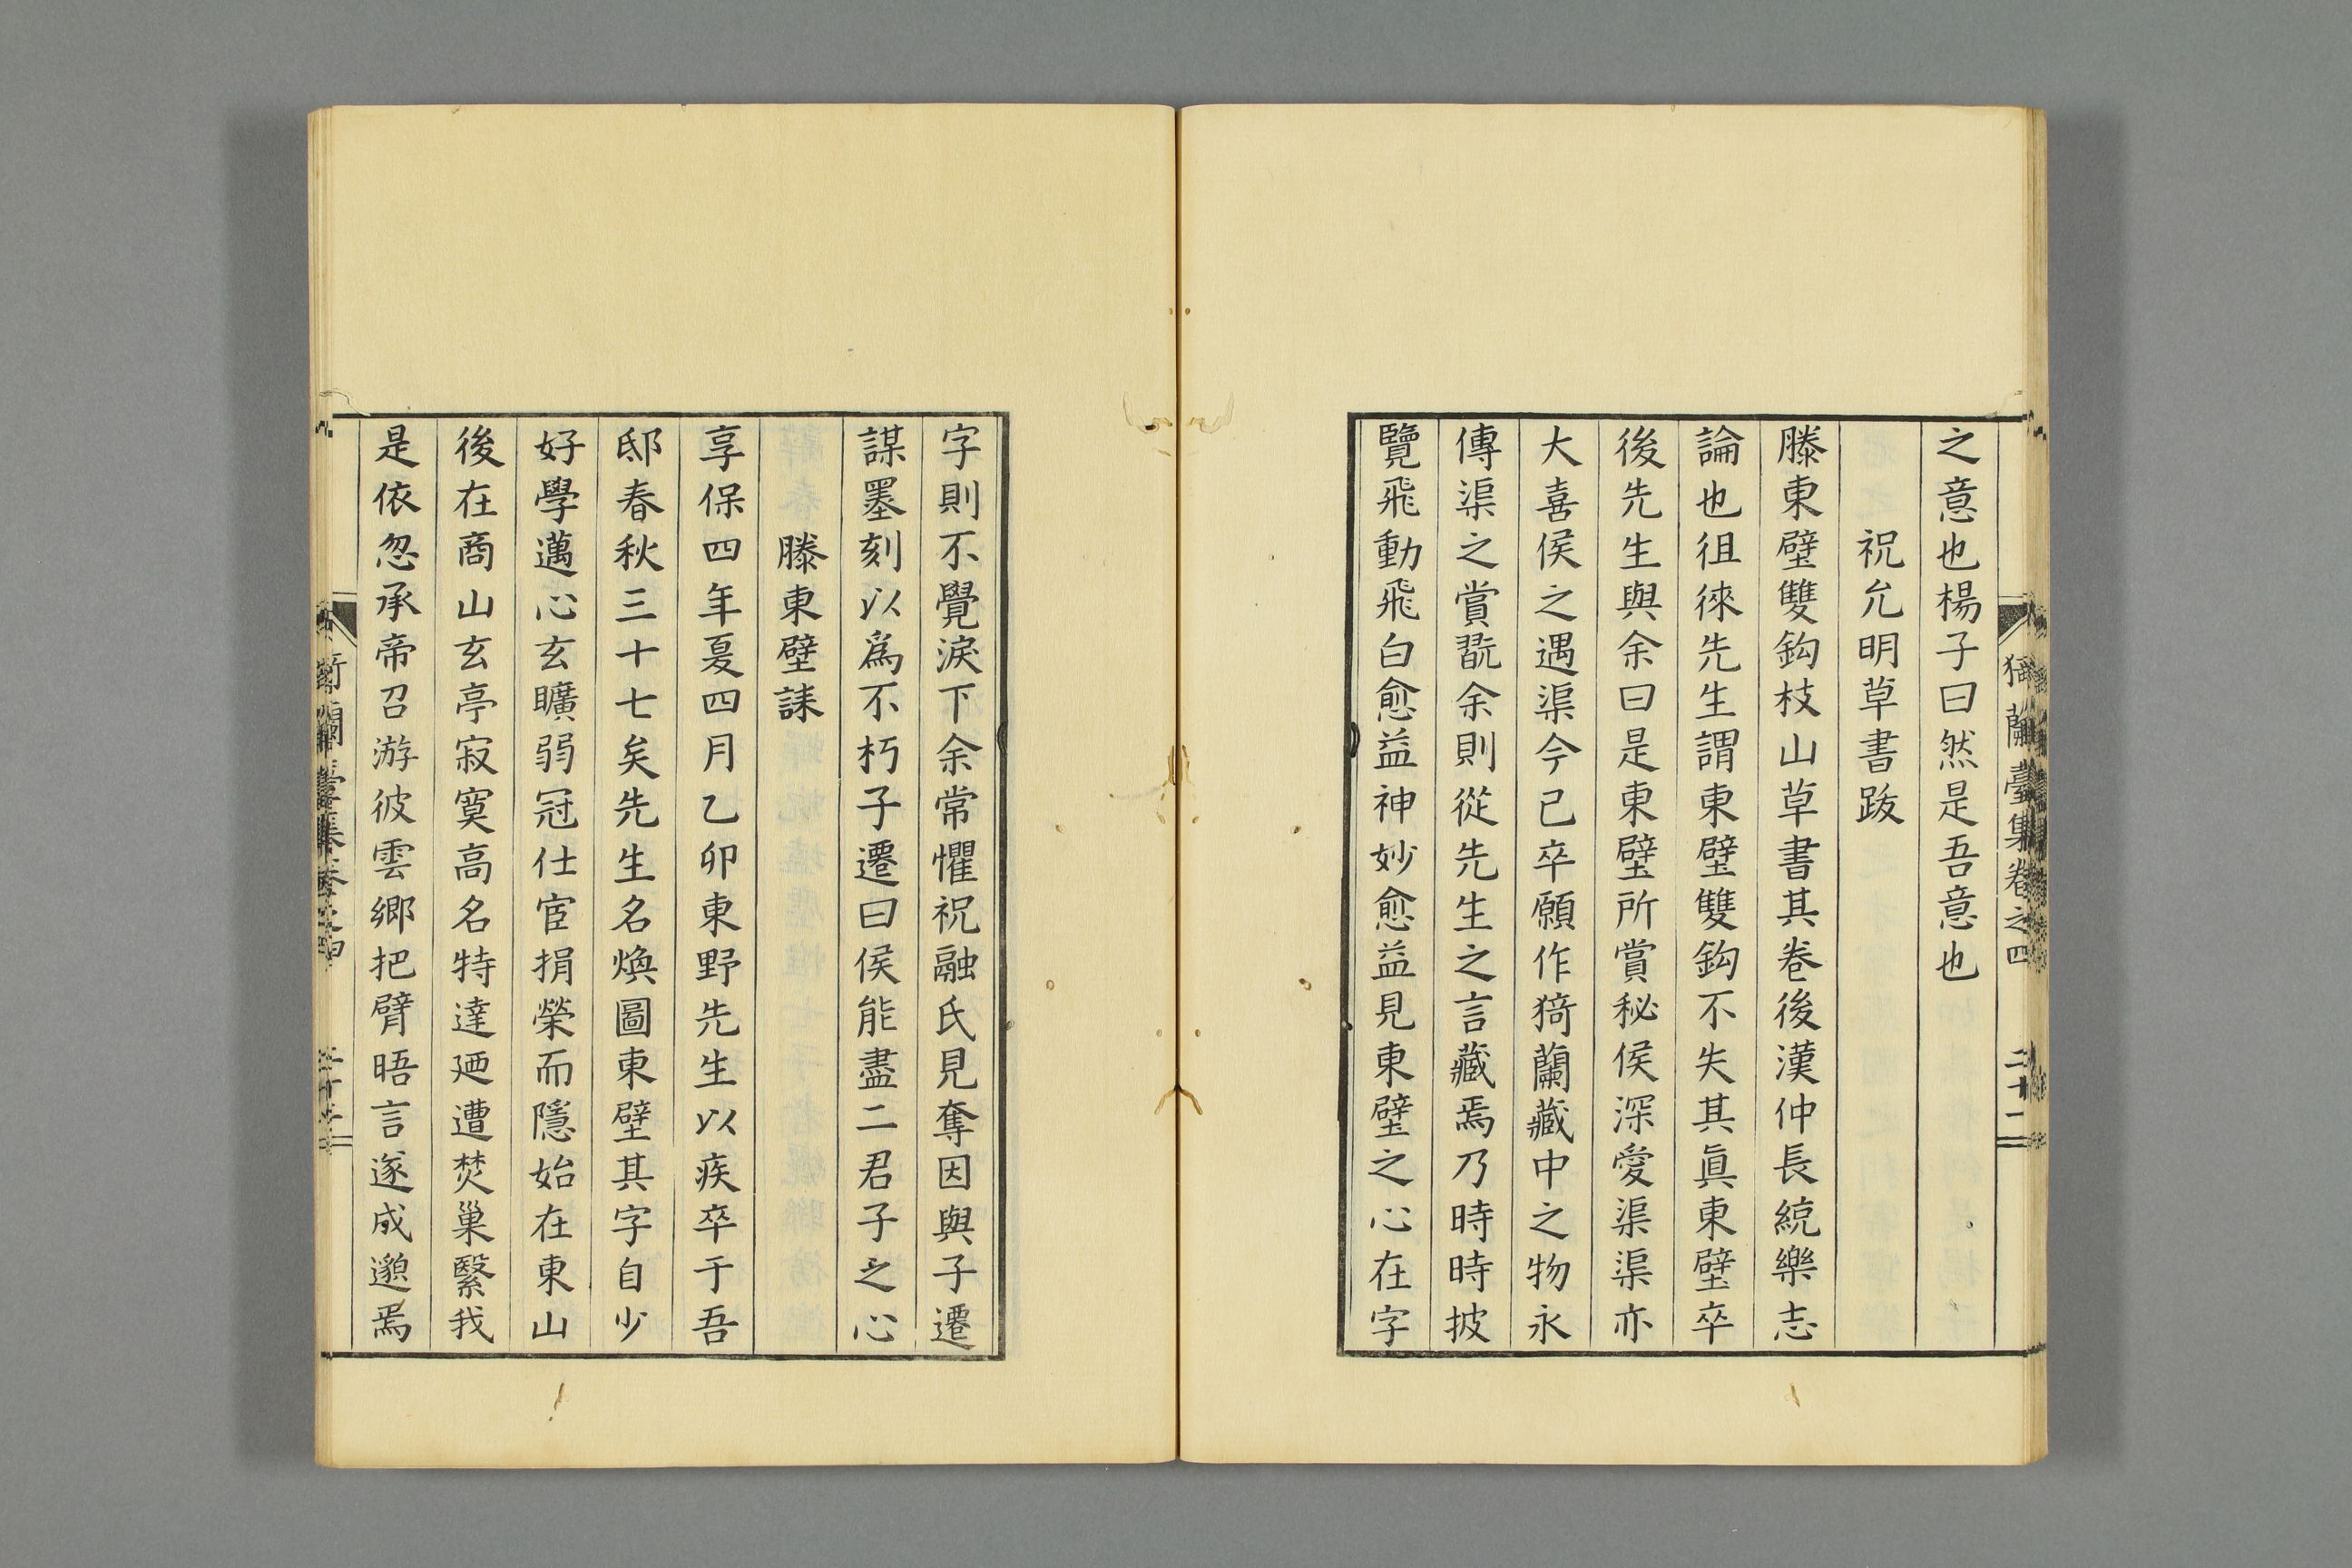 猗蘭臺集卷之四 二十二
之意也楊子曰然是吾意也
祝允明草書跋
滕東壁雙鈎枝山草書其卷後漢仲長統樂志
論也徂徠先生謂東壁雙鈎不失其眞東壁卒
後先生與余曰是東壁所賞秘侯深愛渠渠亦
大喜侯之遇渠今已卒願作猗蘭藏中之物永
傳渠之賞翫余則從先生之言藏焉乃時時披
覽飛動飛白愈益神妙愈益見東壁之心在字
字則不覺淚下余常懼祝融氏見奪因與子遷
謀墨刻以爲不朽子遷曰侯能盡二君子之心
滕東壁誄
享保四年夏四月乙卯東野先生以疾卒于吾
邸春秋三十七矣先生名煥圖東壁其字自少
好學邁心玄曠弱冠仕宦捐榮而隱始在東山
後在商山玄亭寂寞高名特達迺遭焚巢繄我
是依忽承帝召游彼雲鄉把臂晤言遂成邈焉